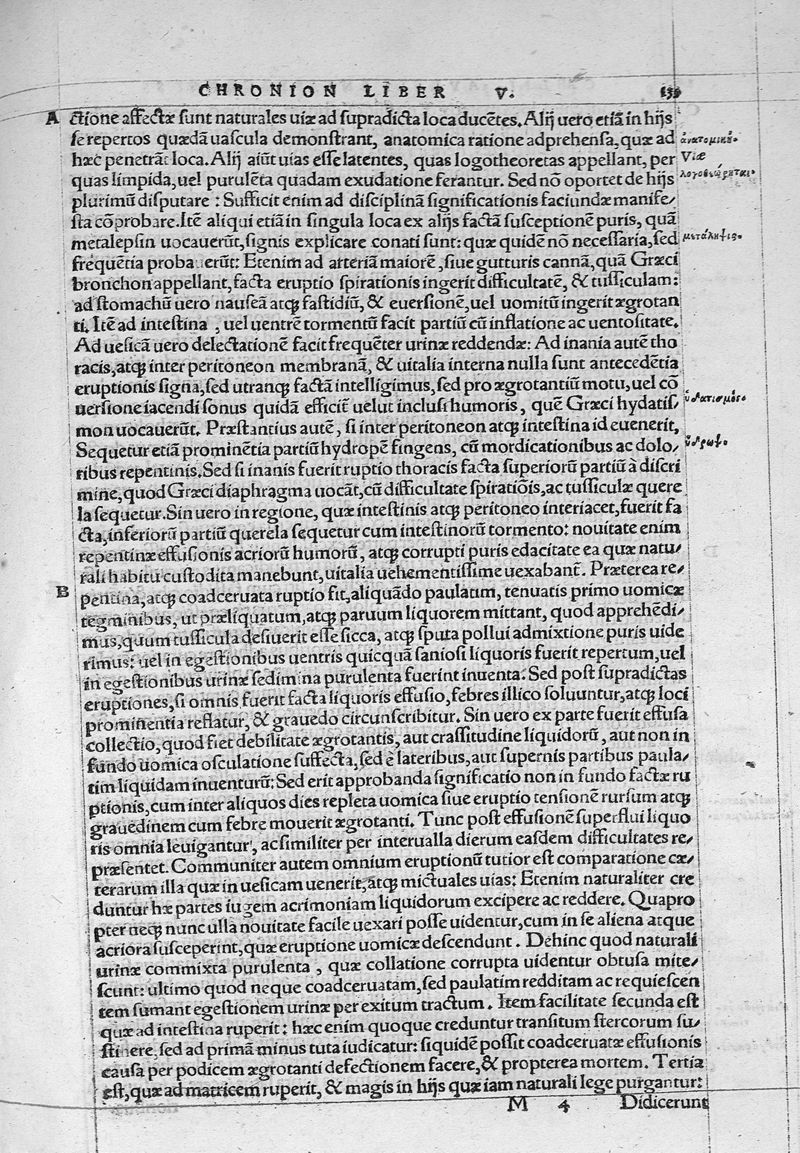 CHRONION LIBER V. 139
A ctione affectæ ſunt naturales uiæ ad ſupradicta loca ducẽtes. Alij uero etiã in hijs
ſe repertos quædã uaſcula demonſtrant, anatomica ratione adprehenſa, quæ ad ἀνατομικῆ.
hæc penetrãt loca. Alij aiũt uias eſſe latentes, quas logotheoretas appellant, per Viæ
quas limpida, uel purulẽta quadam exudatione ferantur. Sed nõ oportet de hijs λογοθεώρηται.
plurimũ diſputare: Sufficit enim ad diſciplinã ſignificationis faciundæ manife⸗
ſta cõprobare. Itẽ aliqui etiã in ſingula loca ex alijs factã ſuſceptionẽ puris, quã
metalepſin uocauerũt, ſignis explicare conati ſunt: quæ quidẽ nõ neceſſaria, ſed μετάληψις.
frequẽtia probauerũt: Etenim ad arteriã maiorẽ, ſiue gutturis cannã, quã Græci
bronchon appellant, facta eruptio ſpirationis ingerit difficultatẽ, & tuſſiculam:
ad ſtomachũ uero nauſeã atq; faſtidiũ, & euerſionẽ, uel uomitũ ingerit ægrotan
ti. Itẽ ad inteſtina, uel uentrẽ tormentũ facit partiũ cũ inflatione ac uentoſitate.
Ad ueſicã uero delectationẽ facit frequẽter urinæ reddendæ: Ad inania autẽ tho
racis, atq; inter peritoneon membranã, & uitalia interna nulla ſunt antecedẽtia
eruptionis ſigna, ſed utranq; factã intelligimus, ſed pro ægrotantiũ motu, uel cõ
uerſione iacendi ſonus quidã efficit̃ uelut incluſi humoris, quẽ Græci hydatiſ⸗ ὑδατισμὸν.
mon uocauerũt. Præſtantius autẽ, ſi inter peritoneon atq; inteſtina id euenerit,
Sequetur etiã prominẽtia partiũ hydropẽ fingens, cũ mordicationibus ac dolo⸗ ὕδρωψ.
ribus repentinis. Sed ſi inanis fuerit ruptio thoracis facta ſuperiorũ partiũ à diſcri
mine, quod Græci diaphragma uocãt, cũ difficultate ſpiratiõis, ac tuſſiculæ quere
la ſequetur. Sin uero in regione, quæ inteſtinis atq; peritoneo interiacet, fuerit fa
cta, inferiorũ partiũ querela ſequetur cum inteſtinorũ tormento: nouitate enim
repentinæ effuſionis acriorũ humorũ, atq; corrupti puris edacitate ea quæ natu⸗
rali habitu cuſtodita manebunt, uitalia uehementiſſime uexabant̃. Præterea re⸗
B pentina, atq; coadceruata ruptio fit, aliquãdo paulatim, tenuatis primo uomicæ
tegminibus, ut præliquatum, atq; paruum liquorem mittant, quod apprehẽdi⸗
mus, quum tuſſicula deſiuerit eſſe ſicca, atq; ſputa pollui admixtione puris uide
rimus: uel in egeſtionibus uentris quicquã ſanioſi liquoris fuerit repertum, uel
in egeſtionibus urinæ ſedimina purulenta fuerint inuenta: Sed poſt ſupradictas
eruptiones, ſi omnis fuerit facta liquoris effuſio, febres illico ſoluuntur, atq; loci
prominentia reflatur, & grauedo circunſcribitur. Sin uero ex parte fuerit effuſa
collectio, quod fiet debilitate ægrotantis, aut craſſitudine liquidorũ, aut non in
fundo uomica oſculatione ſuffecta, ſed è lateribus, aut ſupernis partibus paula⸗
tim liquidam inuenturũ: Sed erit approbanda ſignificatio non in fundo factæ ru
ptionis, cum inter aliquos dies repleta uomica ſiue eruptio tenſionẽ rurſum atq;
grauẽdinem cum febre mouerit ægrotanti. Tunc poſt effuſionẽ ſuperflui liquo
ris omnia leuigantur, ac ſimiliter per interualla dierum eaſdem difficultates re⸗
præſentet. Communiter autem omnium eruptionũ tutior eſt comparatione cæ⸗
terarum illa quæ in ueſicam uenerit, atq; mictuales uias: Etenim naturaliter cre
duntur hæ partes iugem acrimoniam liquidorum excipere ac reddere. Quapro
pter neq; nunc ulla nouitate facile uexari poſſe uidentur, cum in ſe aliena atque
acriora ſuſceperint, quæ eruptione uomicæ deſcendunt. Dehinc quod naturali
urinæ commixta purulenta, quæ collatione corrupta uidentur obtuſa mite⸗
ſcunt: ultimo quod neque coadceruatam, ſed paulatim redditam ac requieſcen
tem ſumant egeſtionem urinæ per exitum tractum. Item facilitate ſecunda eſt
quæ ad inteſtina ruperit: hæc enim quoque creduntur tranſitum ſtercorum ſu⸗
ſtinere, ſed ad primã minus tuta iudicatur: ſiquidẽ poſſit coadceruatæ effuſionis
cauſa per podicem ægrotanti defectionem facere, & propterea mortem. Tertia
eſt, quæ ad matricem ruperit, & magis in hijs quæ iam naturali lege purgantur:
M 4 Didicerunt